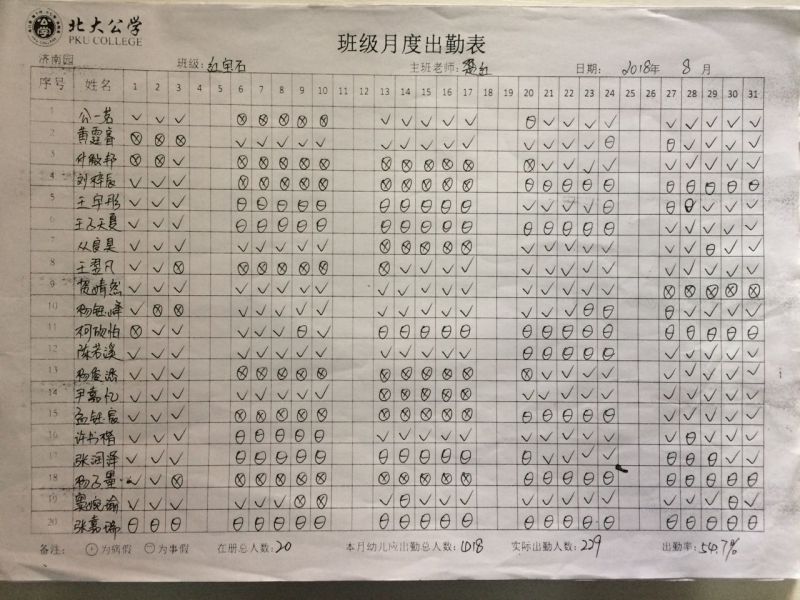 北大公学
PKU COLLEGE
班级月度出勤表
济南园 班级: 红宝石 主班老师: 日期: 2018年 8月
序号 姓名 1 2 3 4 5 6 7 8 9 10 11 12 13 14 15 16 17 18 19 20 21 22 23 24 25 26 27 28 29 30 31
1 公一茗 ✓ ✓ ✓ ⊗ ⊗ ⊗ ⊗ ⊗ ✓ ✓ ✓ ✓ ✓ ⊖ ✓ ✓ ✓ ✓ ✓ ✓ ✓ ✓ ✓
2 黄霆睿 ⊗ ⊗ ⊗ ✓ ✓ ✓ ✓ ✓ ✓ ✓ ✓ ✓ ✓ ✓ ✓ ✓ ✓ ⊖ ⊖ ✓ ✓ ✓ ✓
3 ⊗ ⊗ ✓ ⊗ ⊗ ⊗ ⊗ ⊗ ⊗ ⊗ ⊗ ⊗ ⊗ ⊗ ✓ ✓ ✓ ✓ ✓ ✓ ✓ ✓ ✓
4 刘梓辰 ✓ ✓ ✓ ⊗ ⊗ ⊗ ⊗ ⊗ ⊗ ⊗ ⊗ ⊗ ⊗ ⊖ ⊖ ⊖ ⊖ ⊖ ⊖ ⊖ ⊖ ⊖ ⊖
5 王宇彤 ✓ ✓ ✓ ⊖ ⊖ ⊖ ⊖ ⊖ ⊖ ⊖ ⊖ ⊖ ⊖ ✓ ✓ ✓ ✓ ⊖ ⊖ ⊖ ✓ ✓ ✓
6 王天夏 ✓ ✓ ✓ ⊖ ⊖ ⊖ ⊖ ⊖ ⊖ ⊖ ⊖ ⊖ ⊖ ⊖ ⊖ ⊖ ⊖ ⊖ ✓ ✓ ✓ ✓ ✓
7 从良昊 ✓ ✓ ✓ ✓ ✓ ✓ ✓ ✓ ⊗ ⊗ ⊗ ⊗ ⊗ ✓ ✓ ✓ ✓ ✓ ✓ ✓ ⊖ ✓ ✓
8 王翌凡 ✓ ✓ ⊗ ⊗ ⊗ ⊗ ⊗ ⊗ ⊗ ✓ ✓ ✓ ✓ ✓ ✓ ✓ ✓ ✓ ✓ ✓ ✓ ✓ ✓
9 晴然 ✓ ✓ ✓ ✓ ✓ ✓ ✓ ✓ ✓ ✓ ✓ ✓ ✓ ✓ ✓ ✓ ✓ ✓ ⊗ ⊗ ⊗ ⊗ ⊗
10 杨钰峰 ✓ ⊗ ⊗ ✓ ✓ ✓ ✓ ✓ ✓ ✓ ✓ ✓ ✓ ✓ ✓ ✓ ⊖ ⊖ ✓ ✓ ✓ ✓ ✓
11 柯欣怡 ⊗ ✓ ✓ ✓ ✓ ✓ ⊖ ✓ ⊖ ⊖ ⊖ ⊖ ⊖ ⊖ ⊖ ⊖ ⊖ ⊖ ⊖ ⊖ ⊖ ⊖ ⊖
12 陈若溪 ✓ ✓ ✓ ✓ ✓ ✓ ✓ ✓ ✓ ✓ ✓ ✓ ✓ ⊖ ⊖ ⊖ ⊖ ⊖ ✓ ✓ ✓ ✓ ✓
13 ✓ ✓ ✓ ⊗ ⊗ ⊗ ⊗ ⊗ ⊗ ⊗ ⊗ ⊗ ⊗ ⊗ ✓ ✓ ✓ ✓ ✓ ✓ ✓ ✓ ✓
14 尹嘉忆 ✓ ✓ ✓ ✓ ✓ ✓ ✓ ✓ ⊗ ⊗ ⊗ ⊗ ⊗ ✓ ✓ ✓ ✓ ✓ ✓ ✓ ✓ ✓ ✓
15 孟钰宸 ✓ ✓ ✓ ⊗ ⊗ ⊗ ⊗ ⊗ ⊗ ⊗ ⊗ ⊗ ⊗ ⊖ ⊖ ⊖ ⊖ ⊖ ✓ ✓ ✓ ✓ ✓
16 许书楷 ✓ ✓ ✓ ⊖ ⊖ ⊖ ⊖ ⊖ ✓ ✓ ✓ ✓ ✓ ✓ ✓ ✓ ✓ ✓ ✓ ⊖ ✓ ✓ ✓
17 张润泽 ✓ ✓ ✓ ⊖ ⊖ ⊖ ⊖ ⊖ ⊖ ⊖ ⊖ ⊖ ⊖ ⊖ ✓ ✓ ✓ ✓ ⊖ ⊖ ⊖ ✓ ✓
18 杨子墨 ✓ ✓ ⊗ ⊗ ⊗ ⊗ ⊗ ⊗ ⊗ ⊗ ⊗ ⊗ ⊗ ⊖ ⊖ ⊖ ⊖ ⊖ ⊖ ⊖ ⊖ ⊖ ⊖
19 窦婉瑜 ✓ ✓ ✓ ✓ ✓ ✓ ⊗ ⊗ ✓ ⊖ ✓ ✓ ✓ ✓ ✓ ✓ ✓ ✓ ✓ ✓ ✓ ⊖ ✓
20 张嘉瑞 ⊖ ⊖ ⊖ ⊖ ⊖ ⊖ ⊖ ⊖ ⊖ ⊖ ⊖ ⊖ ⊖ ⊖ ⊖ ⊖ ⊖ ⊖ ⊖ ⊖ ⊖ ⊖ ⊖
备注: 为病假 ⊖为事假 在册总人数: 20 本月幼儿应出勤总人数: 1018 实际出勤人数: 229 出勤率: 54.7%